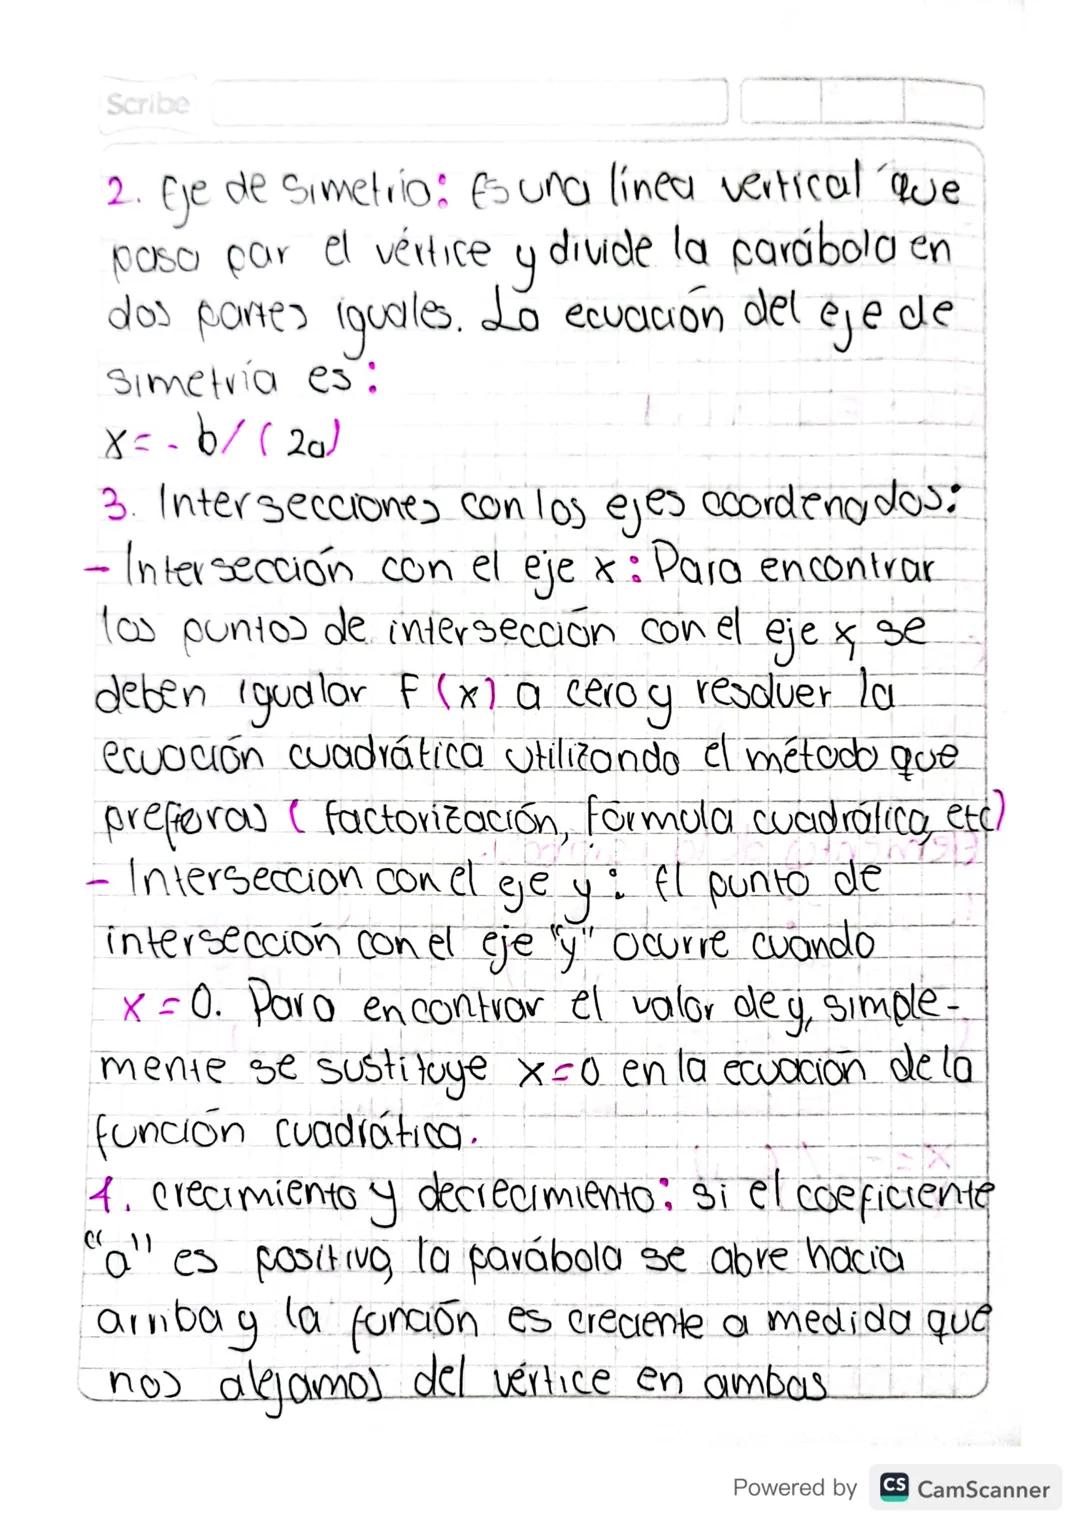 Scribe
2. Eje de simetria: Es una línea vertical que
pasa por el vértice y divide la parábola en
dos partes iguales. La ecuación del eje de
simetría es:
x=-b/(2a)
3. Intersecciones con los ejes coordenados:
- Intersección con el eje x: Para encontrar
los puntos de intersección con el eje x, se
deben igualar F(x) a cero y resolver la
ecuación cuadrática utilizando el método que
prefieras (factorización, fórmula cuadrática, etc)
- Interseccion con el eje y: El punto de
intersección con el eje "y" ocurre cuando
x=0. Para encontrar el valor de y, simple-
mente se sustituye x=0 en la ecuación de la
función cuadrática.
4. crecimiento y decrecimiento: si el coeficiente
"a" es positivo, la parábola se abre hacia
arriba y la función es creciente a medida que
nos alejamos del vértice en ambas
Powered by CS CamScanner